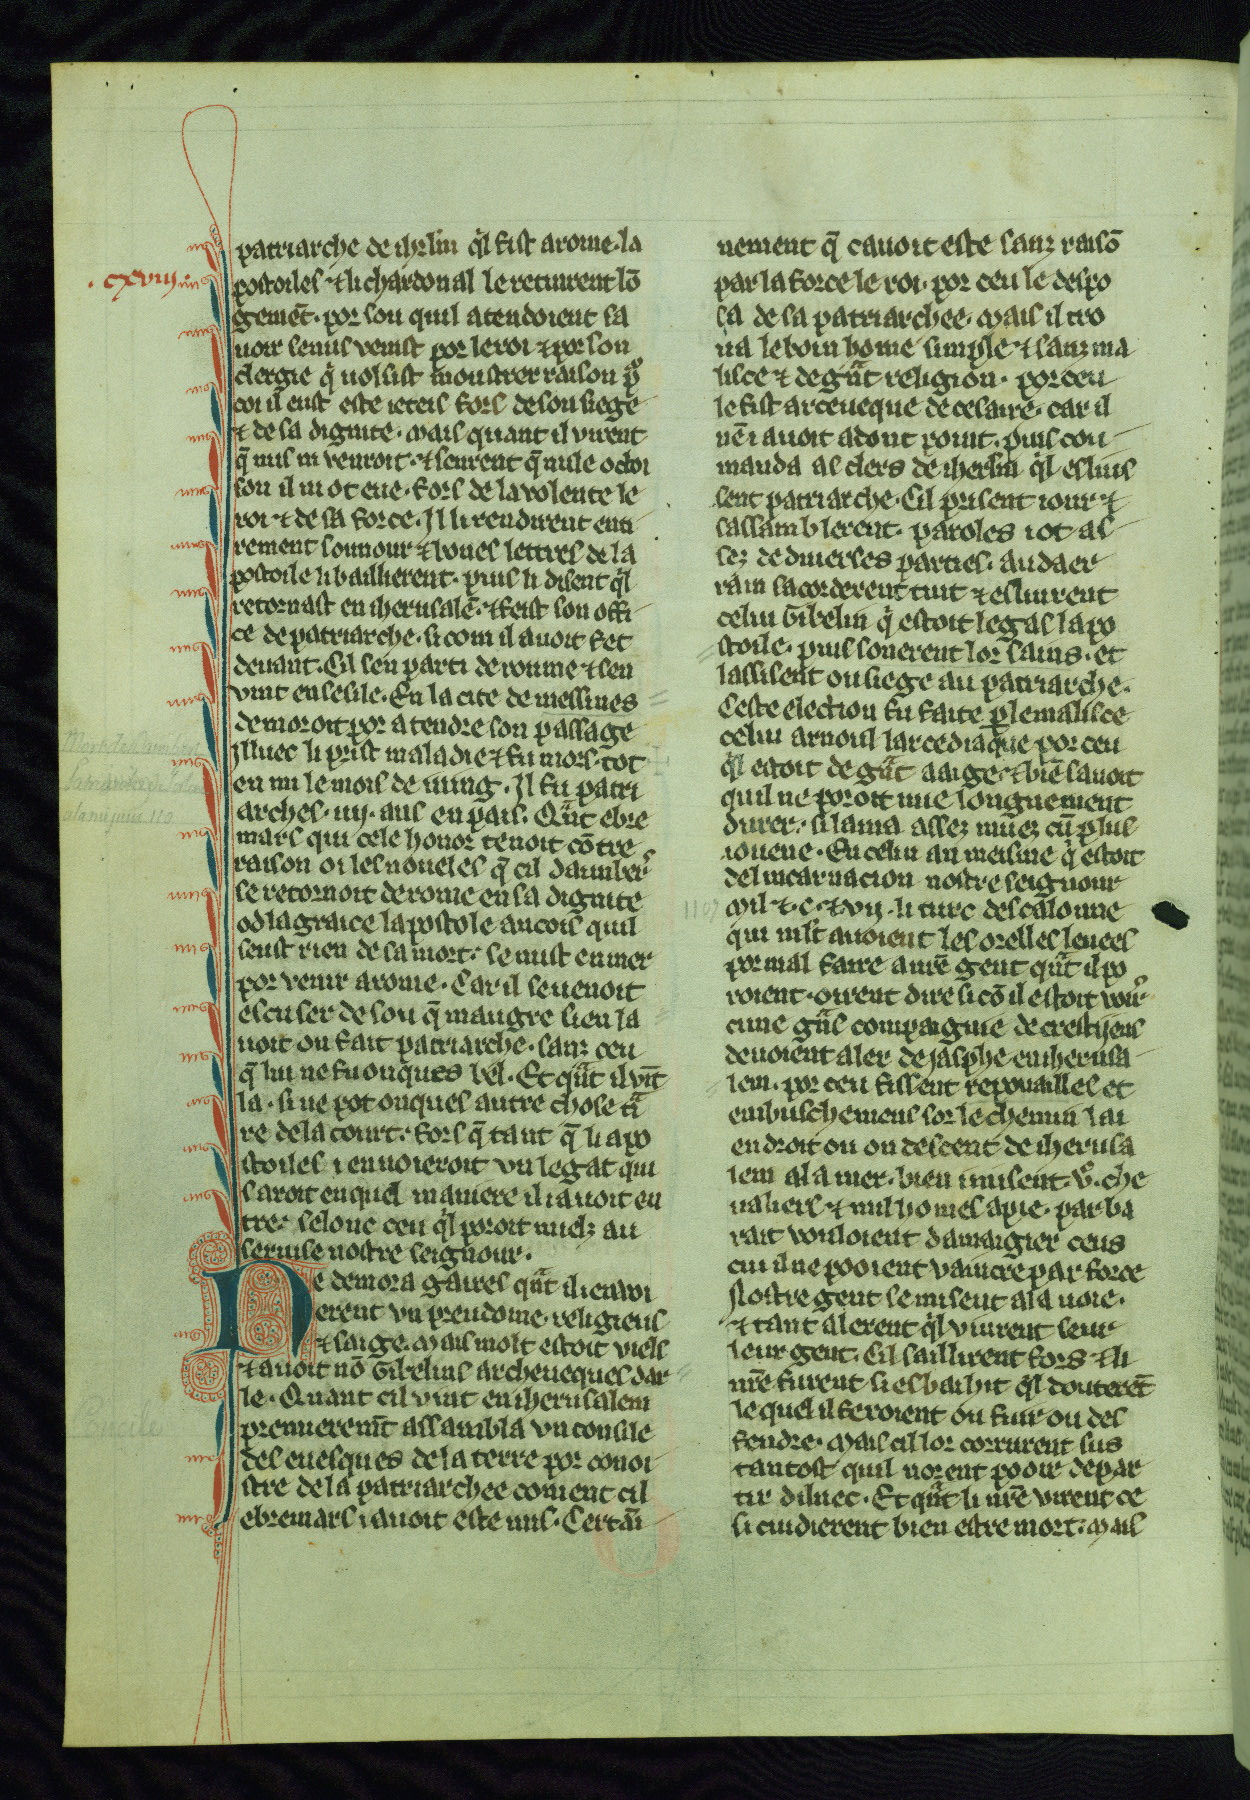 patriarche de ihrlm q̃l fist a rome. la
postoiles ⁊ li chardonal le retinrent lõ
gemẽt. por sou quil atendoient sa
uoir se nus venist por le roi ⁊ por son
clergie q̃ uossist moustrer raison p̱
coi il eust este ieteis fors de son siege
⁊ de sa dignite. Mais quant il virent
q̃ nus ni venroit. ⁊ seurent q̃ nule ochoi
son il ni ot eue. fors de la volente le
roi ⁊ de sa force. Il li rendirent enti
rement sonnour ⁊ bones lettres de la
postoile li baillierent. puis li disent q̃l
retornast en iherusalẽ. ⁊ feist son offi
ce de patriarche. si com il auoit fet
deuant. Cil sen parti de rome ⁊ sen
vint en sesile. En la cite de messines
demoroit por atendre son passage
Illuec li prist maladie ⁊ fu mors. tot
en mi le mois de iung. Il fu patri
arches. iiij. ans en pais. Q̃nt ebre
mars qui cele honor tenoit cõtre
raison oi les noueles q̃ cil daimber̾
se retornoit de rome en sa dignite
od la graice lapostole ancois quil
seust rien de sa mort. se mist en mer
por venir a rome. Car il se uenoit
escuser de sou q̃ maugre sien la
uoit on fait patriarche. sanz ceu
q̃ lui ne fu onques bel. Et q̃nt il vĩt
la. si ne pot onques autre chose fai
re de la court. fors q̃ tant q̃ li apo
stoiles i enuoieroit vn legat qui
saroit en quel maniere il i auoit en
tre. selonc ceu q̃l poroit mielz au
seruise nostre seignour.
Ne demora gaires q̃nt il i enuoi
erent vn preudome. religieus
⁊ saige. Mais molt estoit viels
⁊ auoit nõ Gibelins archeuesques dar
le. Quant cil vint en iherusalem
premieremt̃ assambla vn consile
des euesques de la terre por conoi
stre de la patriarchee coment cil
ebremars i auoit este mis. Certai
.cxviij.
nement q̃ cauoit este sanz raisõ
par la force le roi. por ceu le despo
sa de la patriarchee. Mais il tro
ua le boin home simple ⁊ sanz ma
lisce ⁊ de grãt religion. por ceu
le fist arceueque de cesaire. car il
nẽ i auoit adont point. puis com
manda as clers de iherlm q̃l esleus
sent patriarche. Cil prisent iour ⁊
sassamblerent. paroles i ot as
sez de diuerses parties. au daer
rain sacorderent tuit ⁊ esliurent
celui Gibelin q̃ estoit legas lapo
stoile. puis sonerent lor sains. et
lassisent ou siege au patriarche.
Ceste election fu faite p̱ le malisce
celui arnoul larcediaque por ceu
q̃l estoit de grãt aaige. ⁊ biẽ sauoit
quil ne poroit mie longuement
durer. si lama assez miez cũ plus
iouene. En celui an meisme q̃ estoit
del incarnacion nostre seignour
Mil ⁊ .c. ⁊ vij. li turc descalonne
qui nist auoient les orelles leuees
por mal faire a nre gent q̃nt il po
roient. oirent dire si cõ il estoit voir̾
cune grãs compaignie de crestijens
deuoient aler de jasphe en iherusa
lem. por ceu fissent repouailles et
embuschemens sor le chemin lai
en droit ou on descent de iherusa
lem a la mer. bien i misent vͨ. che
ualiers ⁊ mil homes a pie. par ba
rait vouloient damaigier ceus
cui il ne pooient vaincre par force
Nostre gent se misent a la uoie.
⁊ tant alerent q̃l vinrent seur
leur gent. Cil saillirent fors ⁊ li
nrẽ furent si esbaihit q̃l douterẽt
le quel il feroient ou fuir ou des
fendre. Mais cil lor corrurent sus
tantost quil norent pooir de par
tir diluec. Et q̃nt li nrẽ virent ce
si cuidierent bien estre mort. Mais